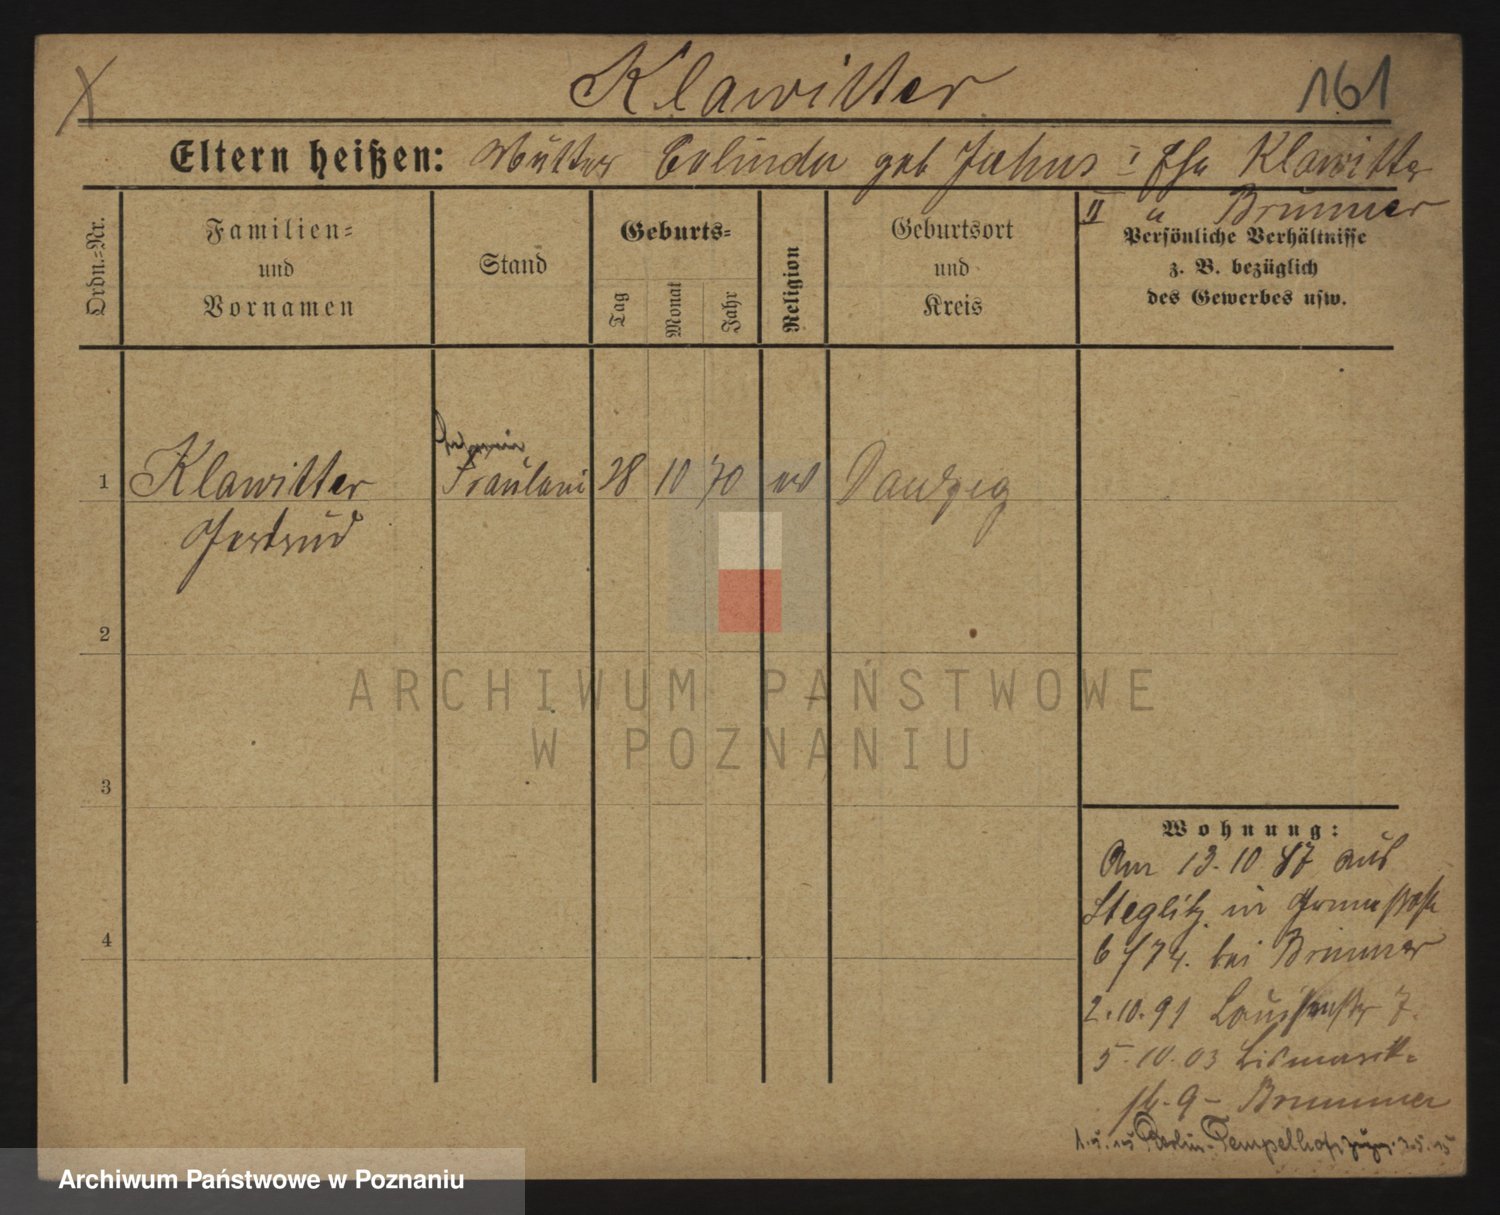 Klawitter
161
Eltern heißen: Mutter geb Jahns I Ehe Klawitter
II " Brunner
Ordn.-Nr.
Familien-
und
Vornamen
Stand
Geburts-
Tag
Monat
Jahr
Religion
Geburtsort
und
Kreis
Persönliche Verhältnisse
z. B. bezüglich
des Gewerbes usw.
1 Klawitter Fräulein 28 10 70 ev Danzig
Gertrud
2
3
4
Wohnung:
Am 13.10 87 aus
Steglitz in
6/74. bei Brunner
2.10.91 Louisenstr 7.
5.10.03 Bismarck-
str. 9 - Brunner
Berlin-Tempelhof
ARCHIWUM PAŃSTWOWE
W POZNANIU
Archiwum Państwowe w Poznaniu